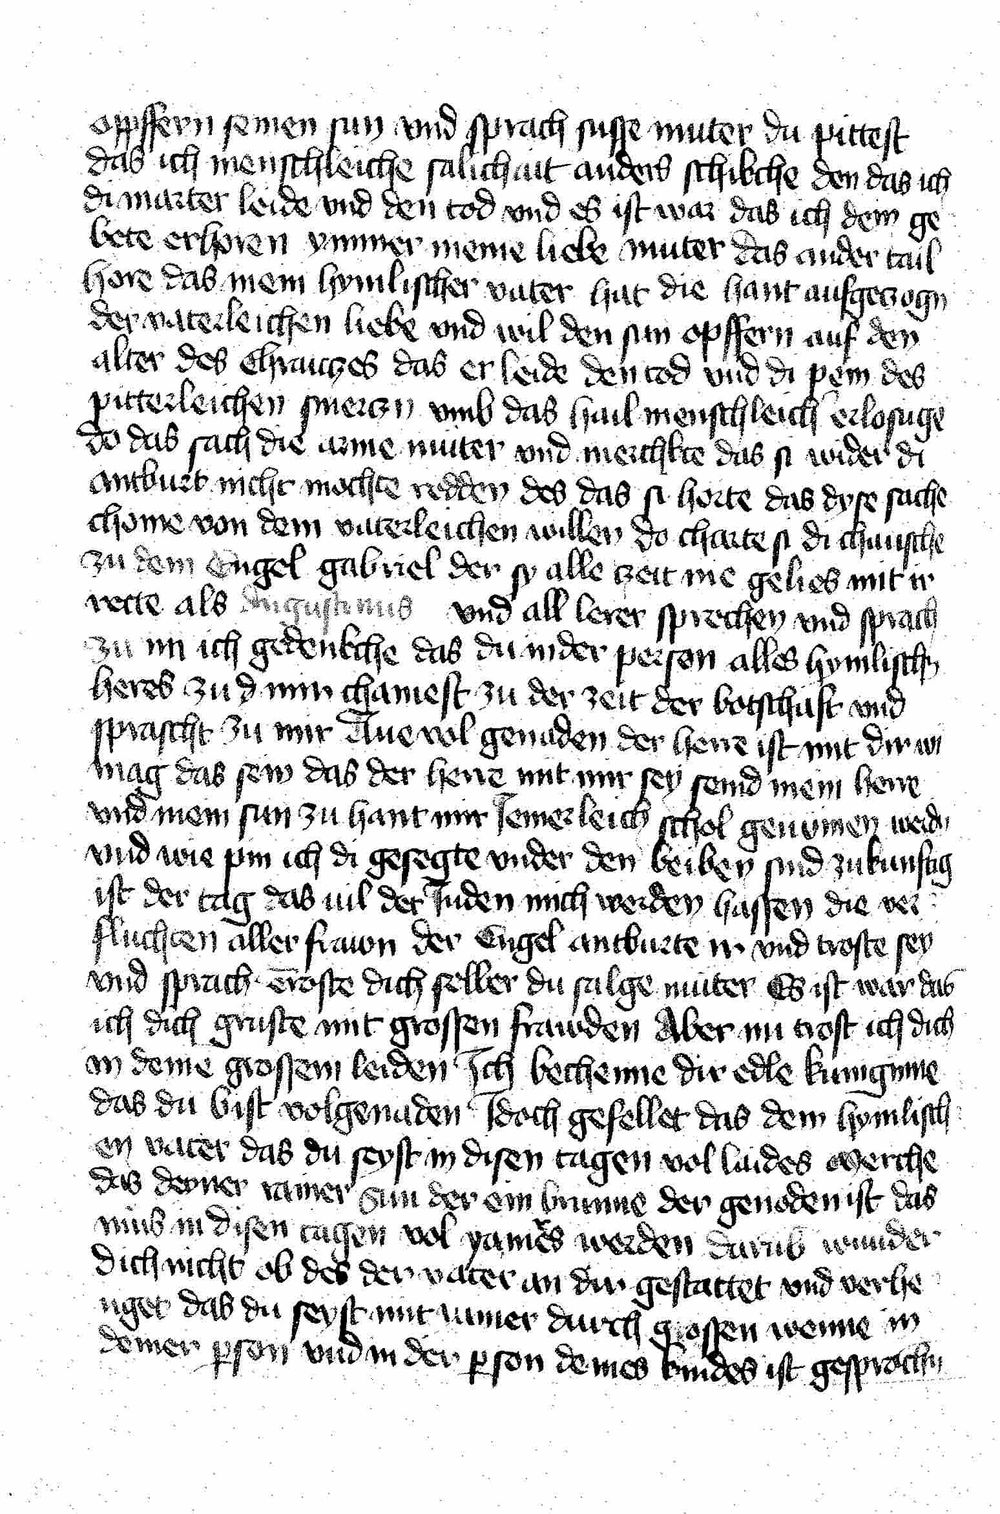 opffern seinen sun vnd sprach susse muter du pittest
das ich menschleiche salichait anders schikche den das ich
di marter leide vnd den tod vnd es ist war das ich dein ge
bete erhoren ymmer meine liebe muter das ander tail
hore das mein hymlischer vater hat die hant aufgezogn
der vaterleichen liebe vnd wil den sun opffern auf den
alter des Chrauczes das er leide den tod vnd di pein des
pitterleichen smerczn vmb das hail menschleich erlosuge
do das sach die arme muter vnd merchkte das si wider di
antburt nicht mochte redden des das si horte das dyse sache
chome von dem vaterleichen willen do charte si di chausche
zu dem Engel gabriel der sy alle zeit nie gelies mit ir
rette als Augustinus vnd all lerer sprechen vnd sprach
zu im ich gedenkche das du in der person alles hymlischn
heres zu mir chamest zu der zeit der botschaft vnd
sprascht zu mir Aue vol genaden der herre ist mit dir wi
mag das sein das der herre mit mir sey seind mein herre
vnd mein sun zu hant mir Iemerleich schol genomen werdn
vnd wie pin ich di gesegte vnder den beiben sind zukunftig
ist der tag das vil der Iuden mich werden hassen die ver
fluchten aller frawn der Engel antburte ir vnd troste sey
vnd sprach Troste dich selber du salge muter Es ist war das
ich dich gruste mit grossen frawden Aber nu trost ich dich
in deine grossem leiden Ich bechenne dir edle kunigınne
das du bist volgenaden Idoch gefellet das dem hymlisch
en vater das du seyst in disen tagen vol laides Merche
das deyner rainer Sun der ein brunne der genoden ist das
mus in disen tagen vol yamers werden darub wunder
dich nicht ob des der vater an dir gestattet vnd verhe
nget das du seyst mit iamer durch grossen wenne in
deiner person vnd in der person deines kindes ist gesprochn